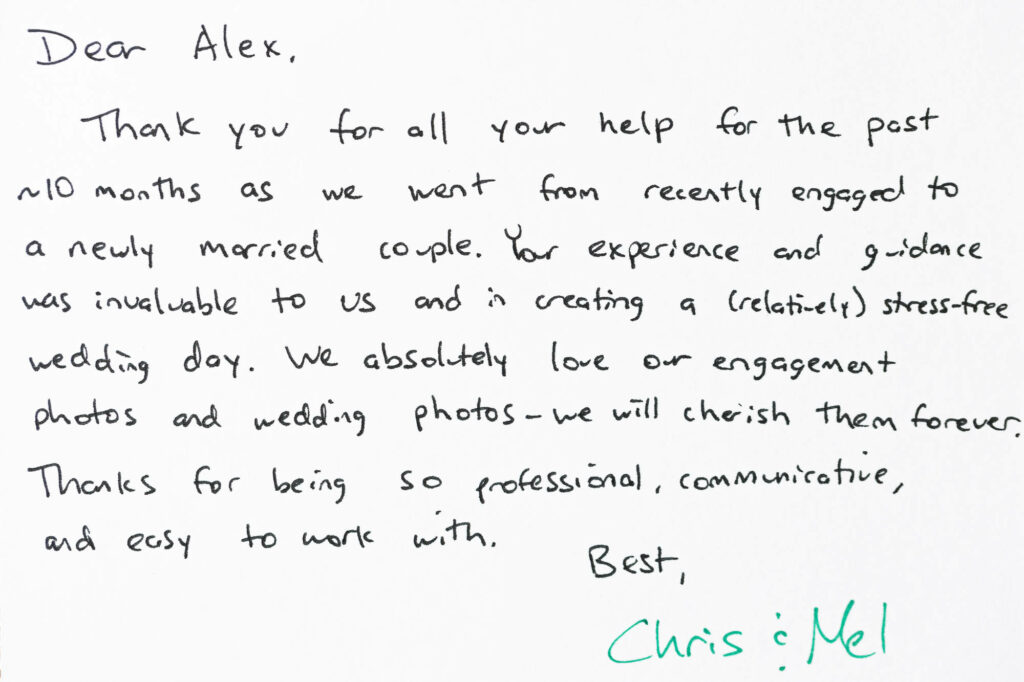 Dear Alex,
Thank you for all your help for the past
~10 months as we went from recently engaged to
a newly married couple. Your experience and guidance
was invaluable to us and in creating a (relatively) stress-free
wedding day. We absolutely love our engagement
photos and wedding photos – we will cherish them forever.
Thanks for being so professional, communicative,
and easy to work with.
Best,
Chris & Mel